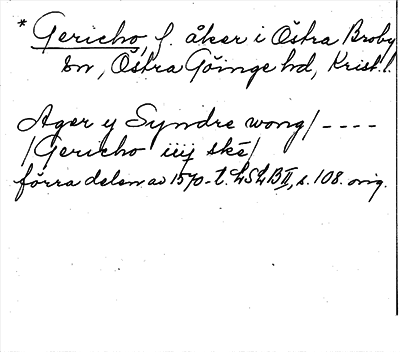 * Gericho, f. åker i Östra Broby
sn, Östra Göinge hd, Krist. l.
Ager y Syndre wong/ ----
/Gericho iiij ske/
förra delen av 1570-t. LSLB II, s. 108. orig.